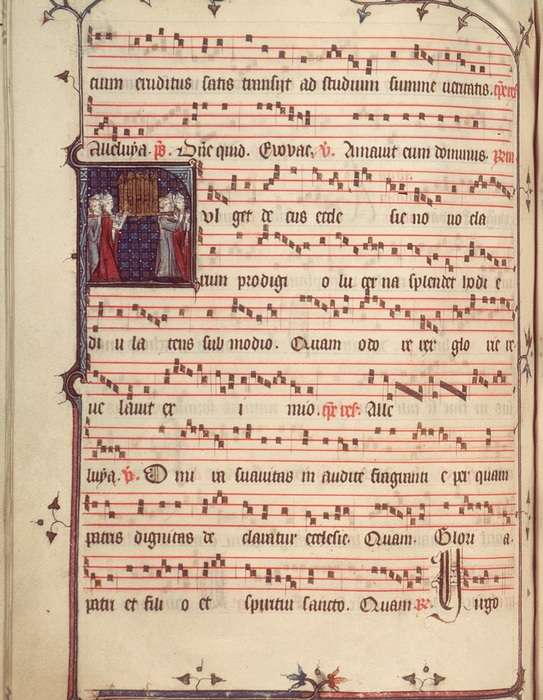 cium eruditus satis transiit ad studium summe veritatis.
Alleluya. ps. Dne quid. Evovae. v. Amavit eum dominus.
vl get de cus eccle sie no vo cla
rum prodigi o lu cer na splendet hodi e
di u la tens sub modio. Quam odo re ver glo rie re
ve lavit ex i mio. Alle
luya. v. O mi ra suavitas in audite fragranti e per quam
patris dignitas de claratur ecclesie. Quam. Glori a.
patri et fili o et spiritui sancto. Quam. R. Virgo